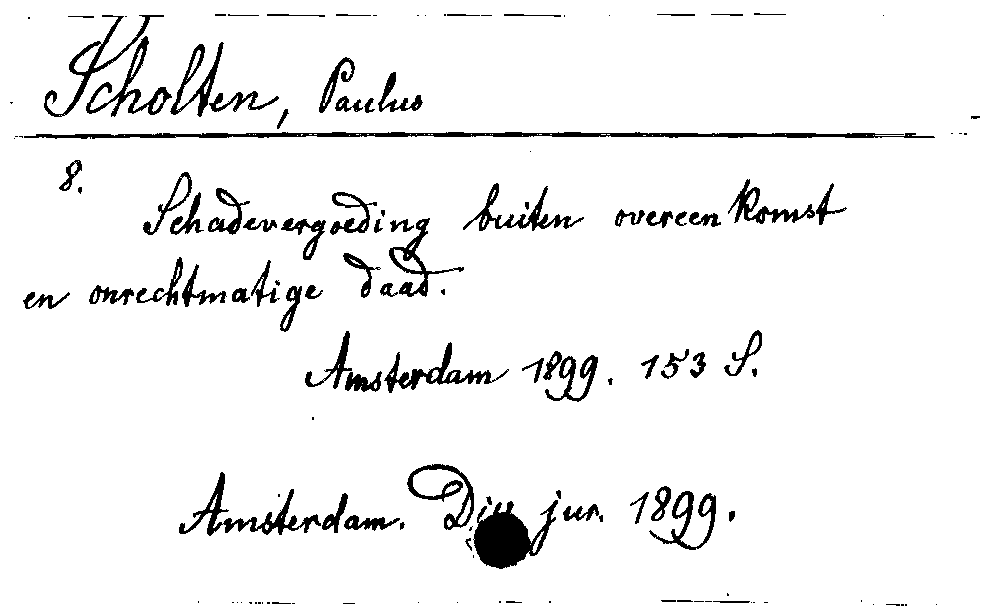 Scholten, Paulus
8.
Schadevergoeding buiten overeenkomst
en onrechtmatige daad.
Amsterdam 1899. 153 S.
Amsterdam. Diss jur. 1899.